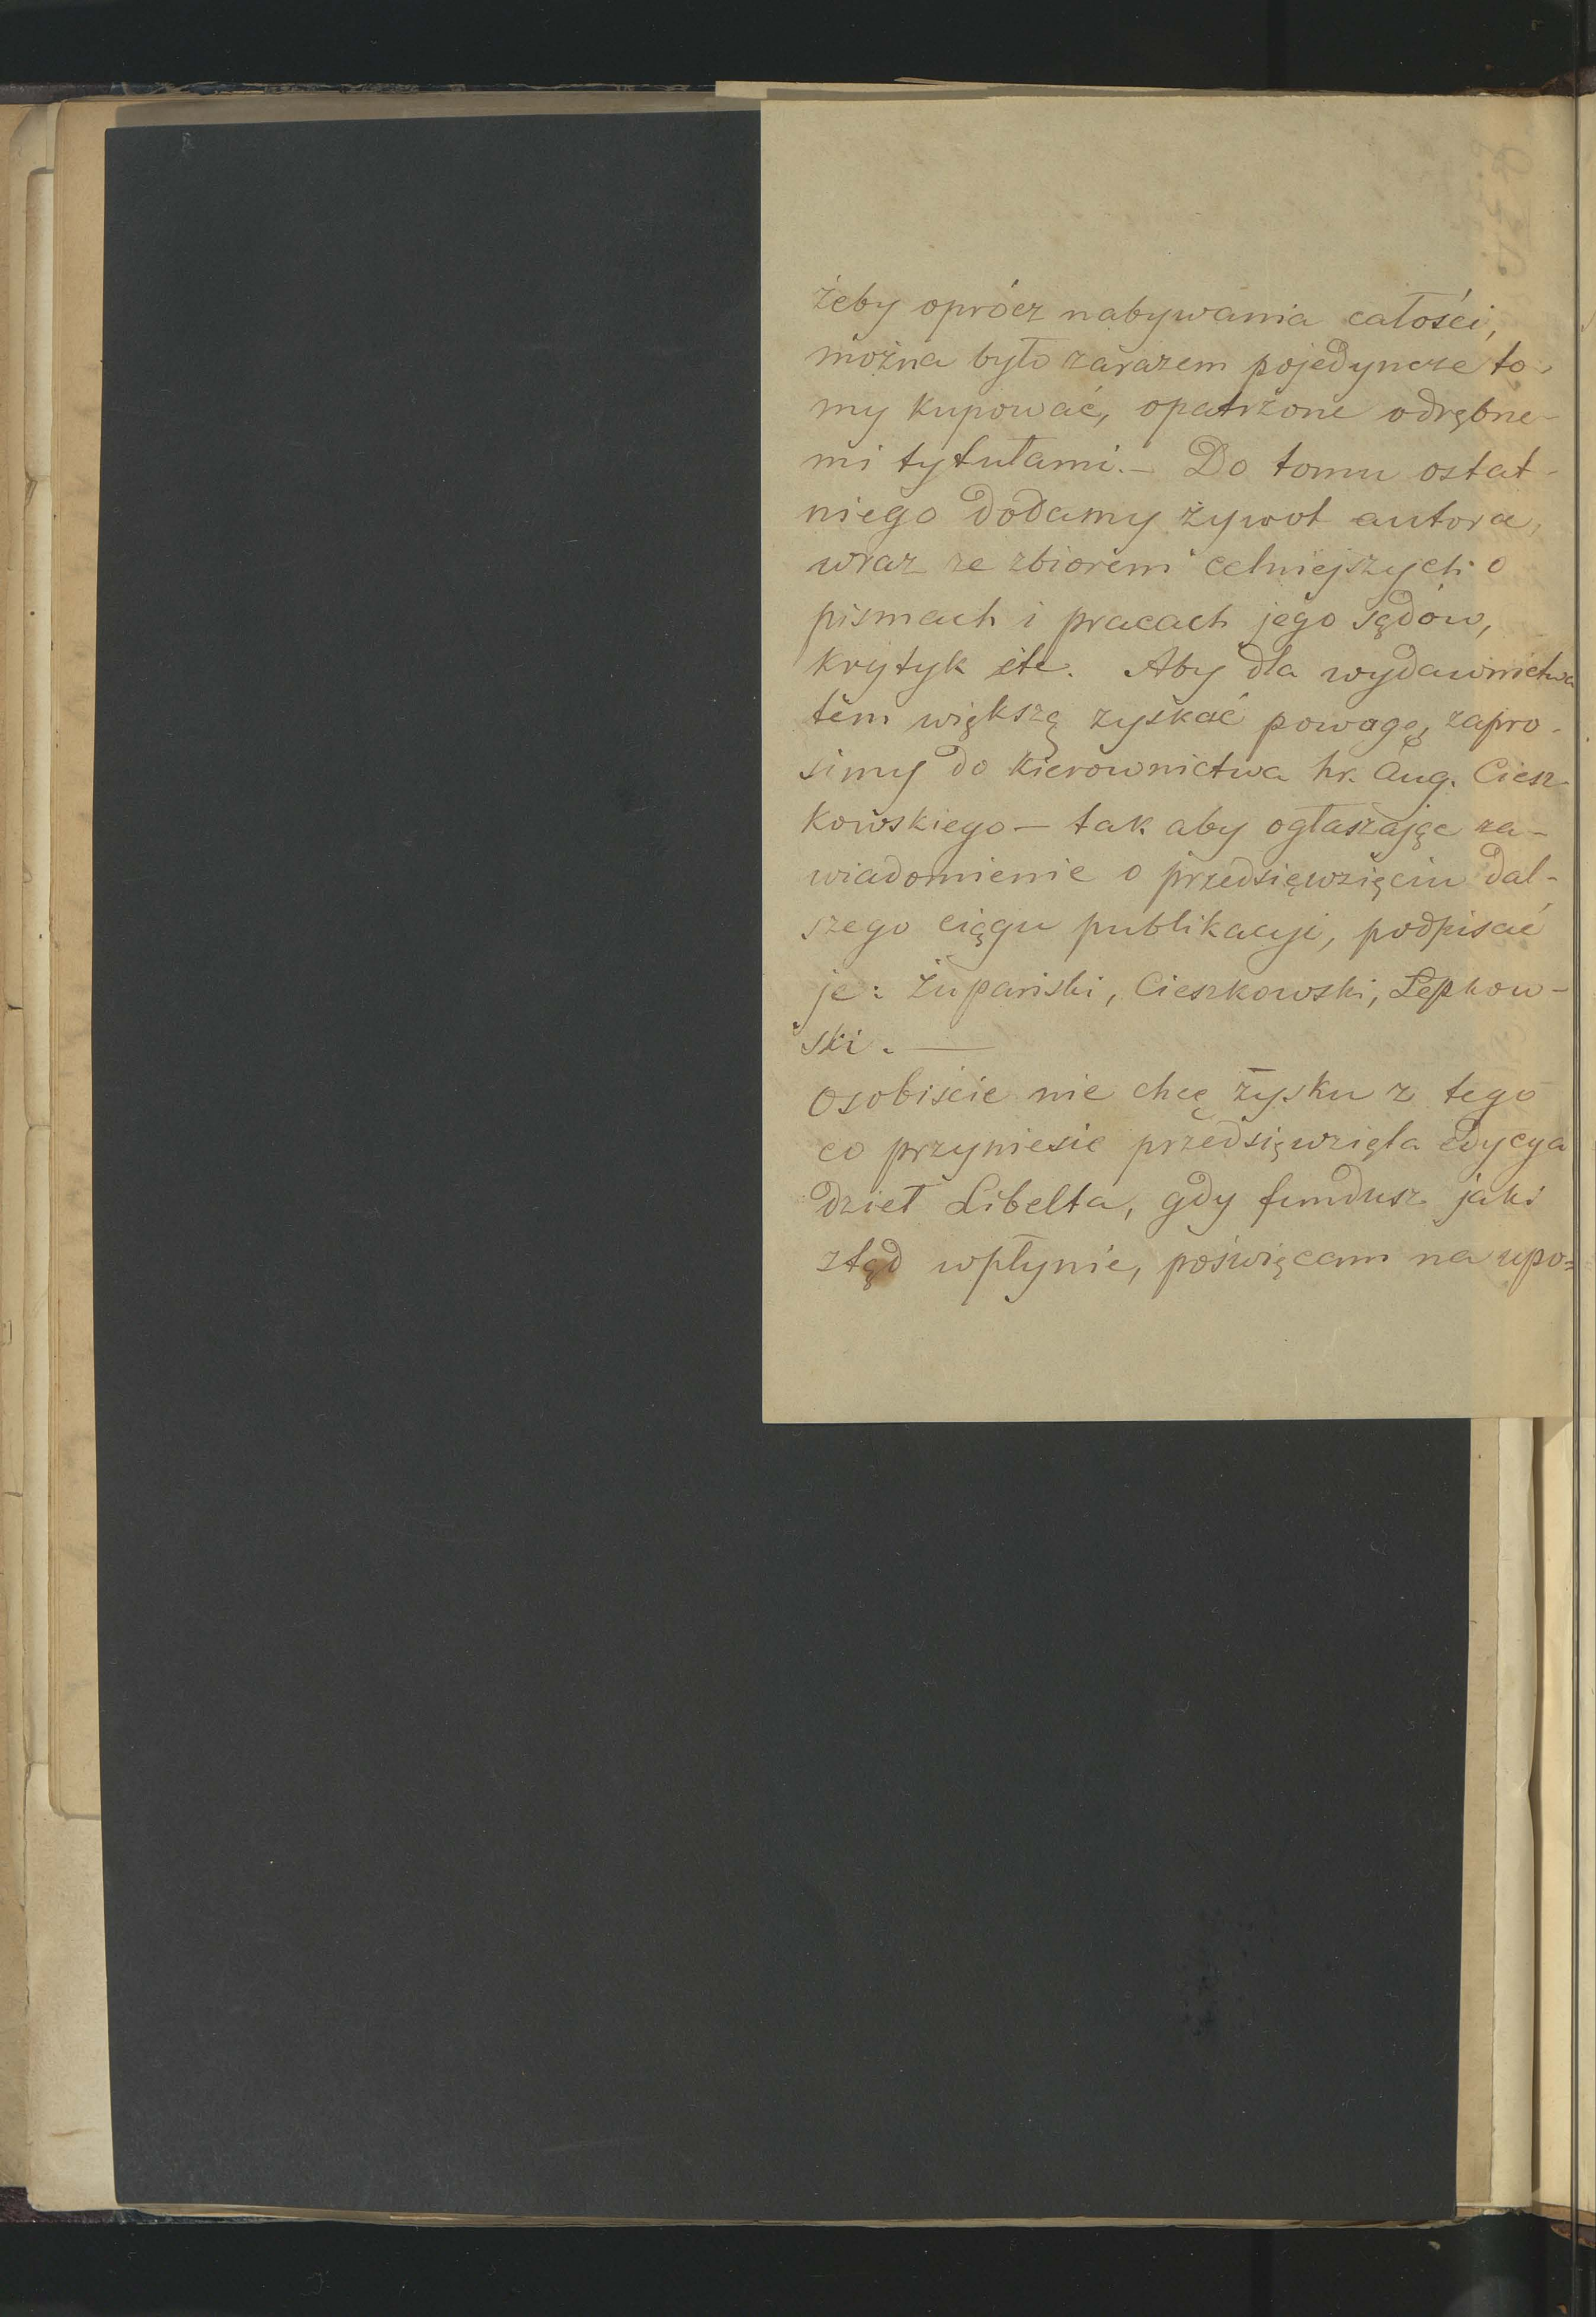 żeby oprócz nabywania całości,
można było zarazem pojedyncze to-
my kupować, opatrzone odrębne-
mi tytułami. — Do tomu ostat-
niego dodamy żywot autora,
wraz ze zbiorem celniejszych o
pismach i pracach jego sądów,
krytyk etc. Aby dla wydawnictwa
tem większą zyskać powagę, zapro-
simy do kierownictwa hr. Aug. Ciesz-
kowskiego — tak aby ogłaszając za-
wiadomienie o przedsięwzięciu dal-
szego ciągu publikacyi, podpisać
je: Żupański, Cieszkowski, Łepkow-
ski. —
Osobiście nie chcę zysku z tego
co przyniesie przedsięwzięta edycya
dzieł Libelta, gdy fundusz jaki
ztąd wpłynie, poświęcam na upo=